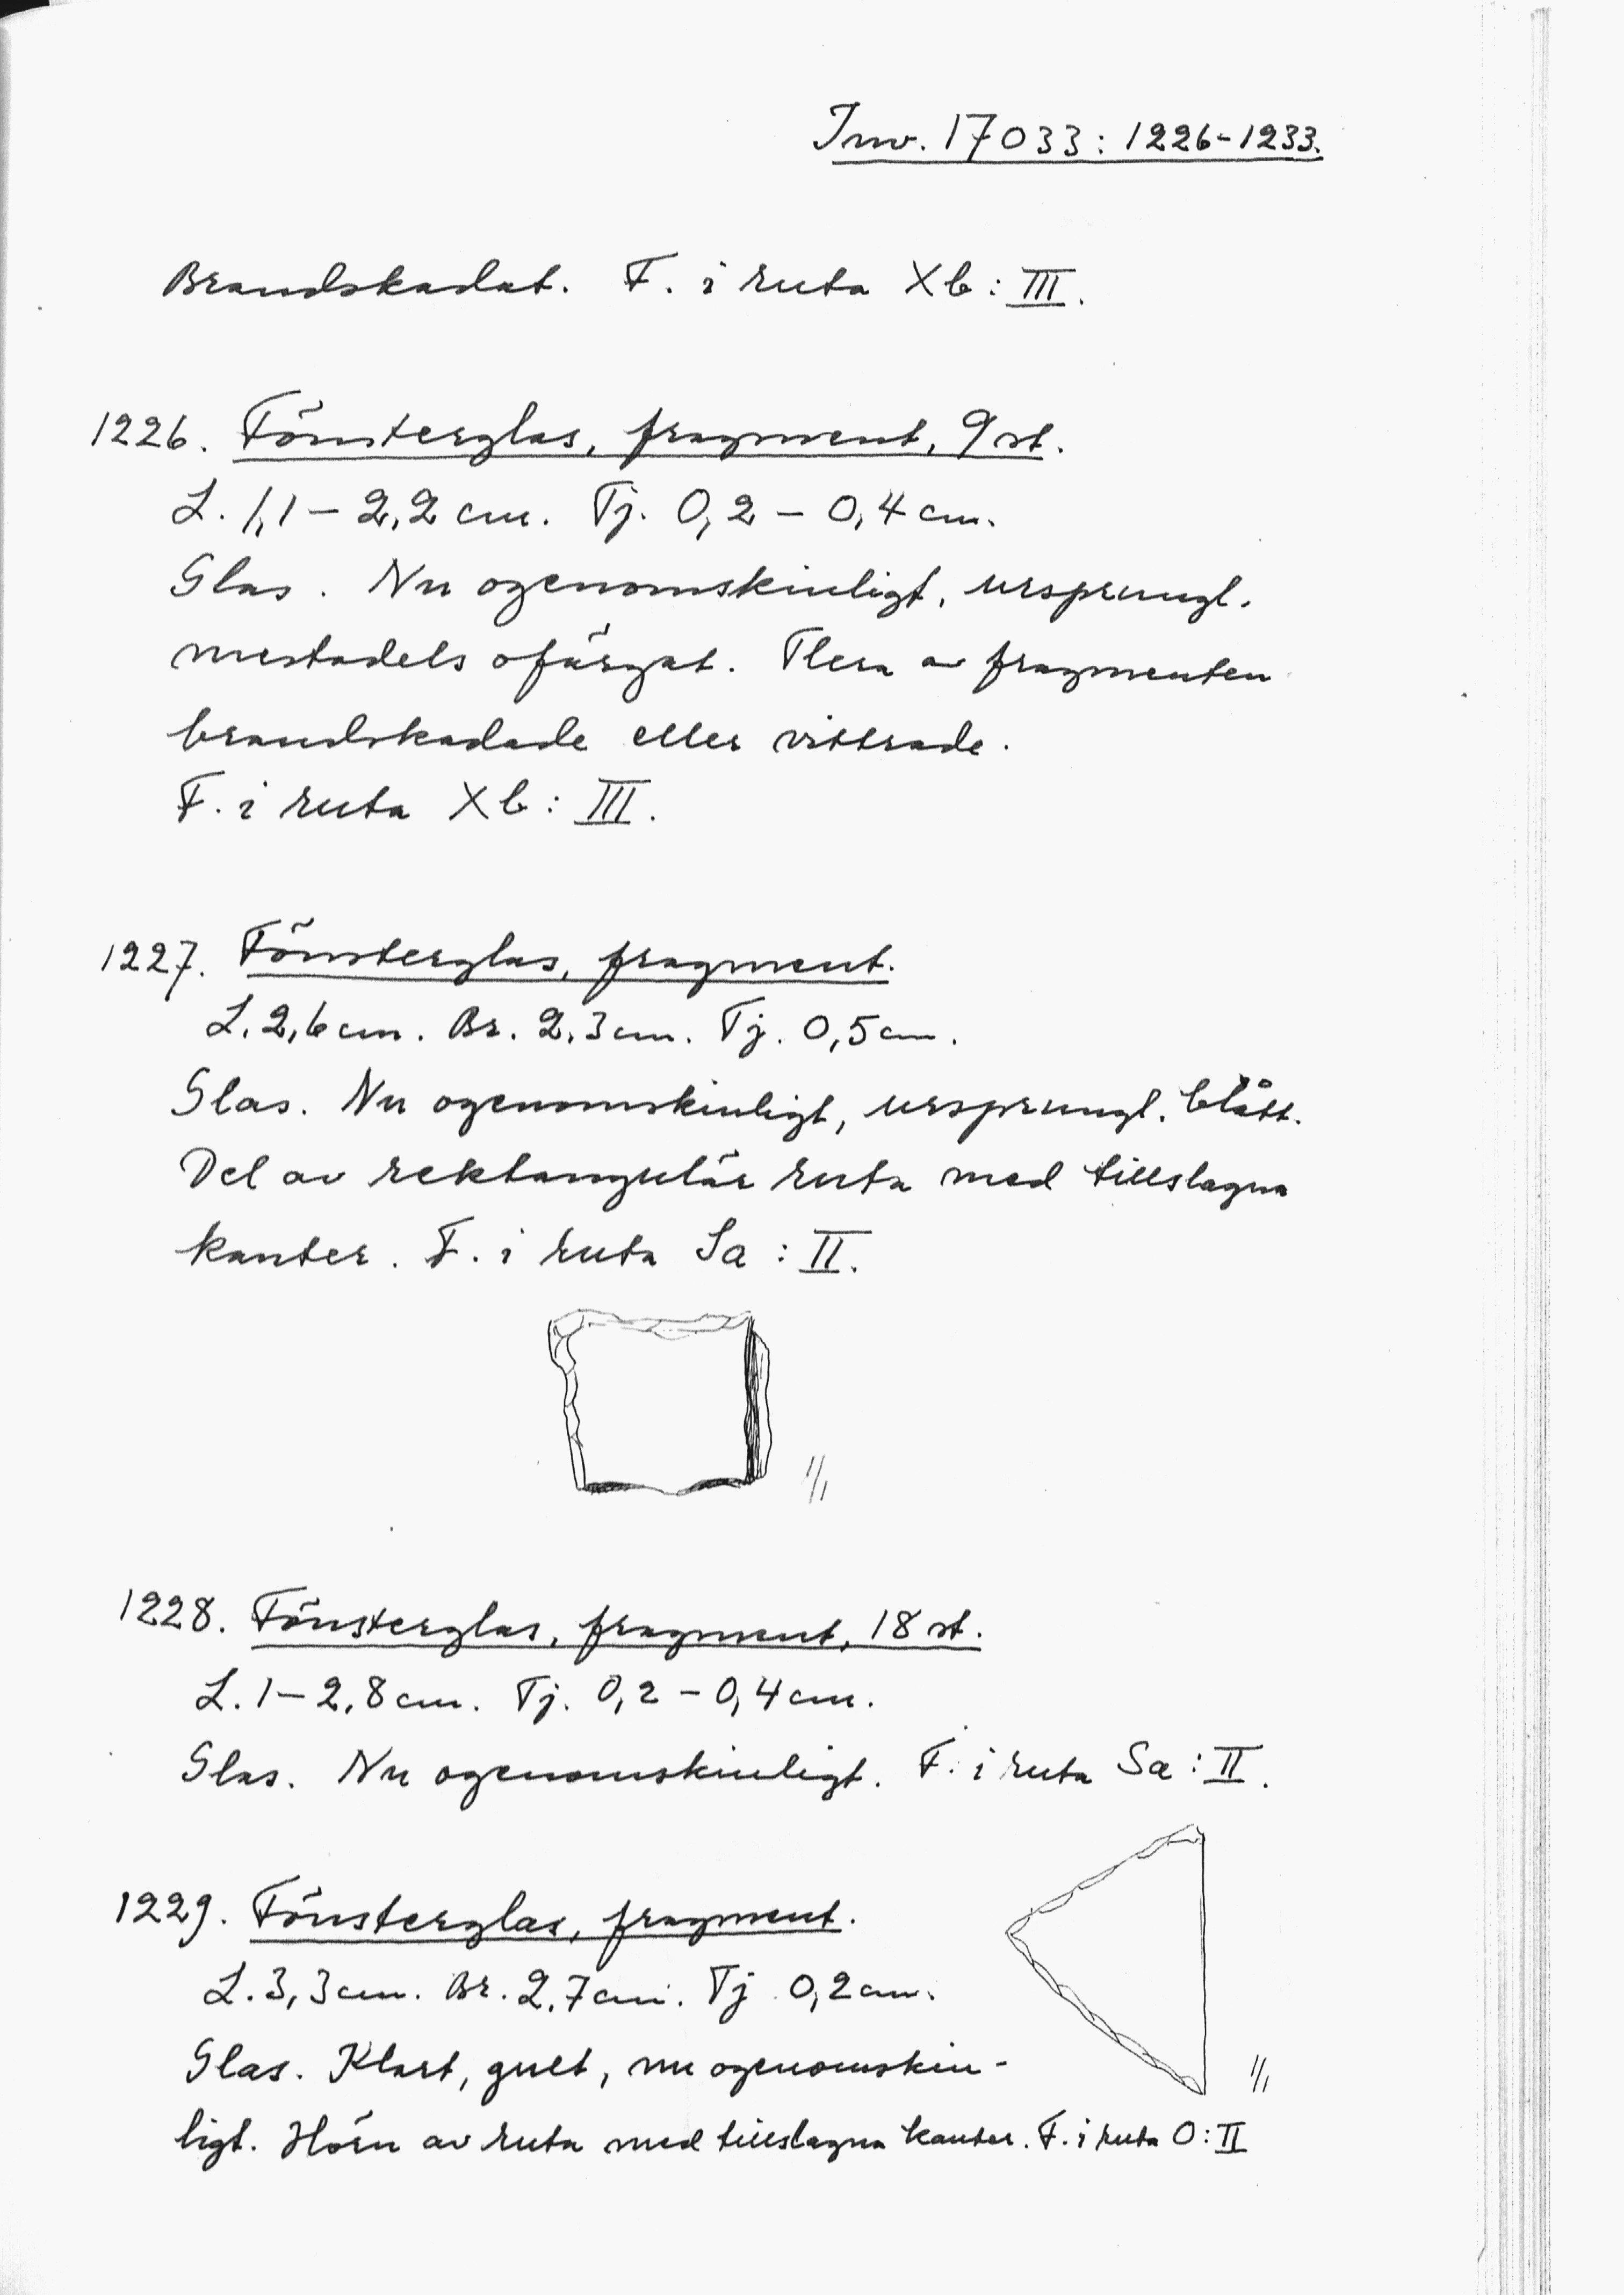 Inv. 17033: 1226-1233.
Brandskadat. F. i ruta Xb: III.
1226. Fönsterglas, fragment, 9 st.
L. 1,1 – 2,2 cm. Tj. 0,2 – 0,4 cm.
Glas. Nu ogenomskinligt, ursprungl.
mestadels ofärgat. Flera av fragmenten
brandskadade eller vittrade.
F. i ruta Xb: III.
1227. Fönsterglas, fragment.
L. 2,6 cm. Br. 2,3 cm. Tj. 0,5 cm.
Glas. Nu ogenomskinligt, ursprungl. blått.
Del av rektangulär ruta med tillslagna
kanter. F. i ruta Sa: II.
1/1
1228. Fönsterglas, fragment, 18 st.
L. 1 – 2,8 cm. Tj. 0,2 – 0,4 cm.
Glas. Nu ogenomskinligt. F. i ruta Sa: II.
1229. Fönsterglas, fragment.
L. 3,3 cm. Br. 2,7 cm. Tj. 0,2 cm.
Glas. Klart, gult, nu ogenomskin-
1/1
ligt. Hörn av ruta med tillslagna kanter. F. i ruta O: II